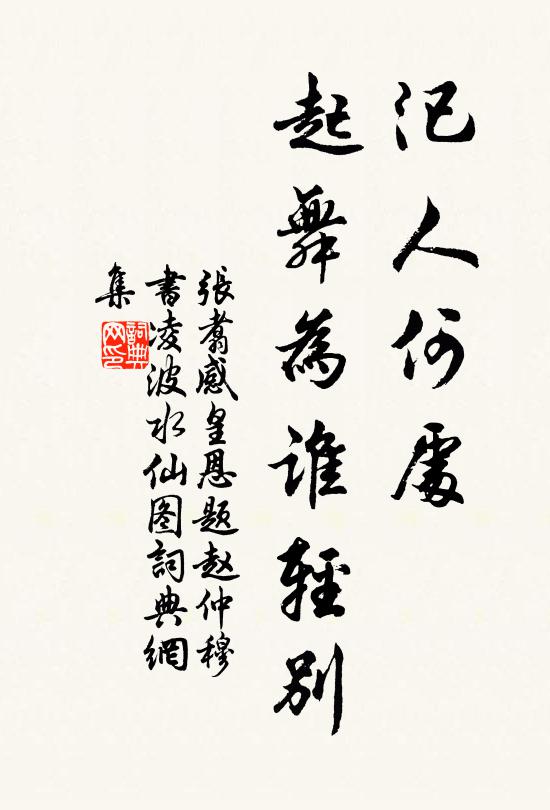 汜人何處
起舞為誰輕別
張翥感皇恩题赵仲穆
書凌波水仙图詞典網
集
詞典
网印